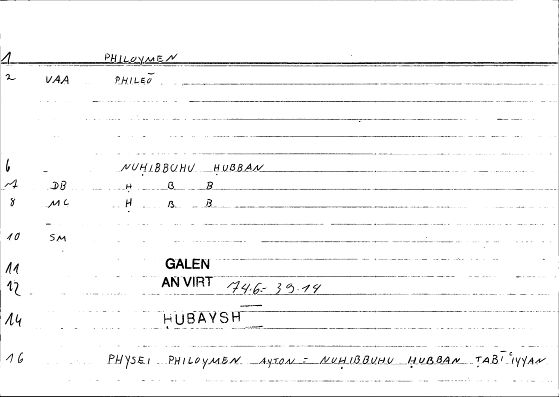 1 PHILOYMEN
2 VAA PHILEŌ
6 - NUḤIBBUHU ḤUBBAN
7 DB Ḥ B B
8 MC Ḥ B B
-
10 SM
11 GALEN
12 AN VIRT 74.6 - 39.14
14 ḤUBAYSH
16 PHYSEI PHILOYMEN AYTON = NUḤIBBUHU ḤUBBAN ṬABĪʿIYYAN